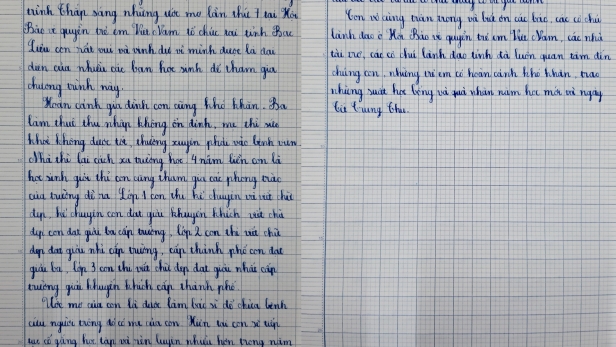 trình Thắp sáng những ước mơ lần thứ 7 tại Hội
Bảo vệ quyền trẻ em Việt Nam tổ chức tại tỉnh Bạc
Liêu con rất vui và vinh dự vì mình được là đại
diện của nhiều các bạn học sinh để tham gia
chương trình này.
Hoàn cảnh gia đình con cũng khó khăn. Ba
làm thuê thu nhập không ổn định, mẹ thì sức
khoẻ không được tốt, thường xuyên phải vào bệnh viện.
Nhà thì lại cách xa trường học. 4 năm liền con là
học sinh giỏi thì con cũng tham gia các phong trào
của trường đề ra. Lớp 1 con thi kể chuyện và viết chữ
đẹp, kể chuyện con đạt giải khuyến khích viết chữ
đẹp con đạt giải ba cấp trường, lớp 2 con thi viết chữ
đẹp đạt giải nhì cấp trường, cấp thành phố con đạt
giải ba, lớp 3 con thi viết chữ đẹp đạt giải nhất cấp
trường giải khuyến khích cấp thành phố.
Ước mơ của con là được làm bác sĩ để chữa bệnh
cứu người trong đó có mẹ của con. Hiện tại con sẽ tiếp
tục cố gắng học tập và rèn luyện nhiều hơn trong năm
Con vô cùng trân trọng và biết ơn các bác, các cô chú
lãnh đạo ở Hội Bảo vệ quyền trẻ em Việt Nam, các nhà
tài trợ, các cô chú lãnh đạo tỉnh đã luôn quan tâm đến
chúng con, những trẻ em có hoàn cảnh khó khăn, trao
những suất học bổng và quà nhân năm học mới và ngày
tết Trung Thu.